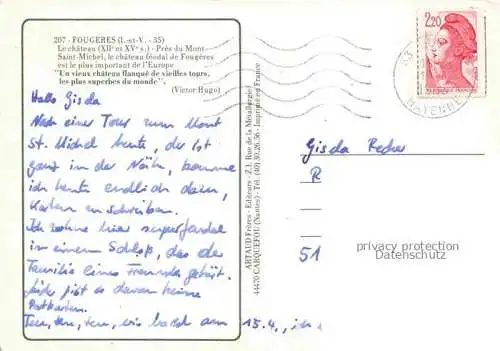 207 - FOUGERES (I.-et-V. - 35)
Le château (XIIe et XVe s.) - Près du Mont-
Saint-Michel, le château féodal de Fougères
est le plus important de l'Europe
"Un vieux château flanqué de vieilles tours,
les plus superbes du monde"
(Victor Hugo)
Hallo Gisda
Nach einer Tour zum Mont
St. Michel heute, der ist
ganz in der Näh, komme
ich heute endlich dazu,
Karten zu schreiben.
Ich wohne hier superfeudal
in einem Schloß, das der
Familie eines Freundes gehört.
Leider gibt es davon keine
Postkarten.
bis bald am 15.4.,
ARTAUD Frères - Editeurs - Z.I. Rue de la Métallurgie
44470 CARQUEFOU (Nantes) - Tél. (40) 30.26.56 - Imprimé en France
2,20
MAYENNE
Gisda
R
51
privacy protection
Datenschutz